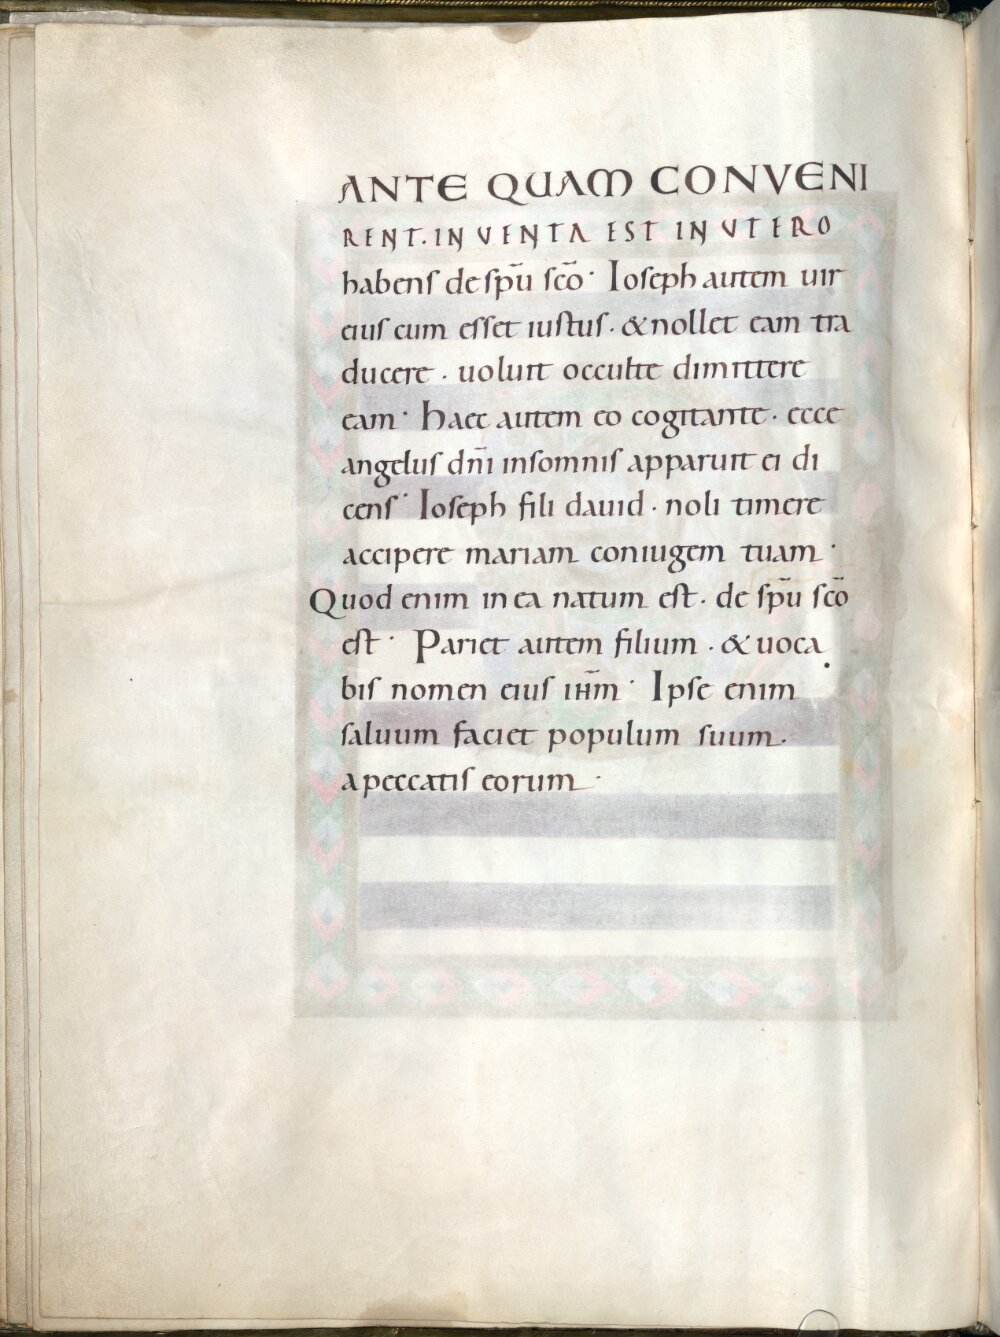 ANTE QUAM CONVENI
RENT. INVENTA EST IN UTERO
habens de spū sc̄o· Ioseph autem uir
eius cum esset iustus· & nollet eam tra
ducere· uoluit occulte dimittere
eam· Haec autem eo cogitante· ecce
angelus dn̄i insomnis apparuit ei di
cens· Ioseph fili dauid· noli timere
accipere mariam coniugem tuam·
Quod enim in ea natum est· de spū sc̄o
est· Pariet autem filium· & uoca
bis nomen eius ih̄m· Ipse enim
saluum faciet populum suum·
a peccatis eorum·